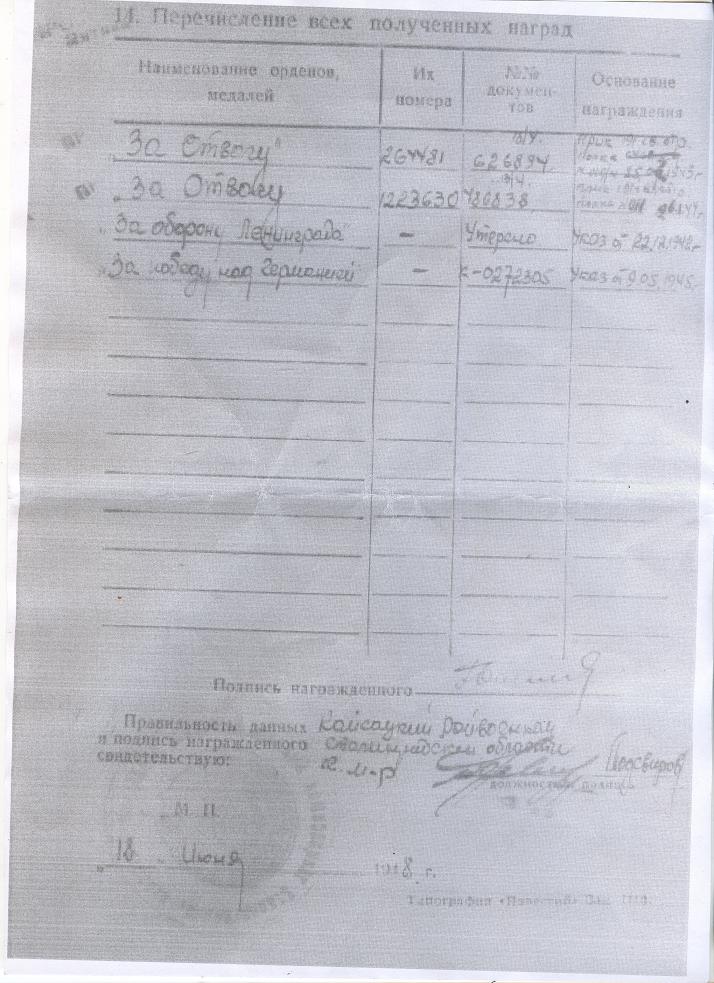 14. Перечисление всех полученных наград
Наименование орденов, медалей
Их номера
№№ документов
Основание награждения
„За Отвагу"
264481
626894
„За Отвагу
1223630
486838
„За оборону Ленинграда
—
Утеряно
Указ от 22.12.1942 г.
„За победу над Германией
—
К-0272305
Указ от 9.05.1945 г.
Подпись награжденного
Правильность данных Кайсацкий Райвоенком
и подпись награжденного Сталинградской области
свидетельствую: м-р Просвиров
должность и подпись
М. П.
„18 „ Июня 1948 г.
Типография «Известий» Зак.